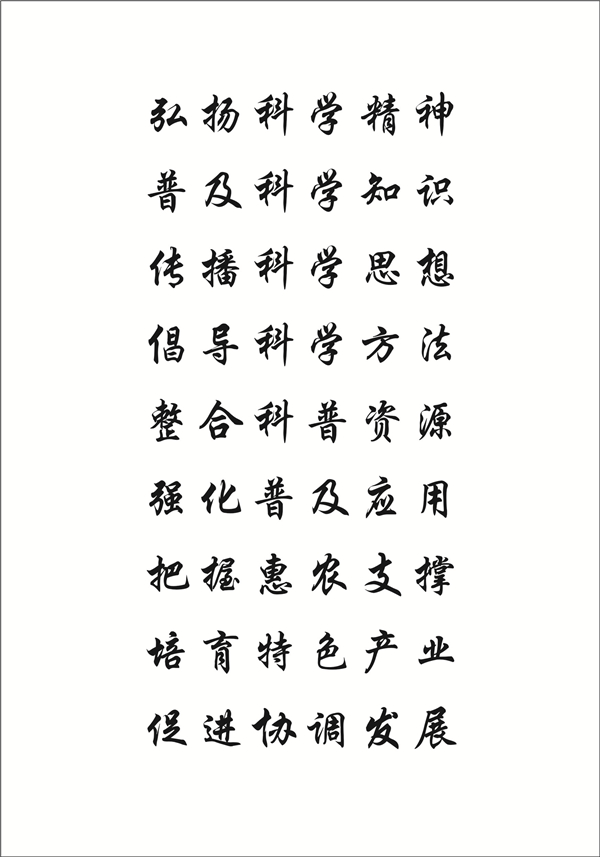 弘扬科学精神
普及科学知识
传播科学思想
倡导科学方法
整合科普资源
强化普及应用
把握惠农支撑
培育特色产业
促进协调发展